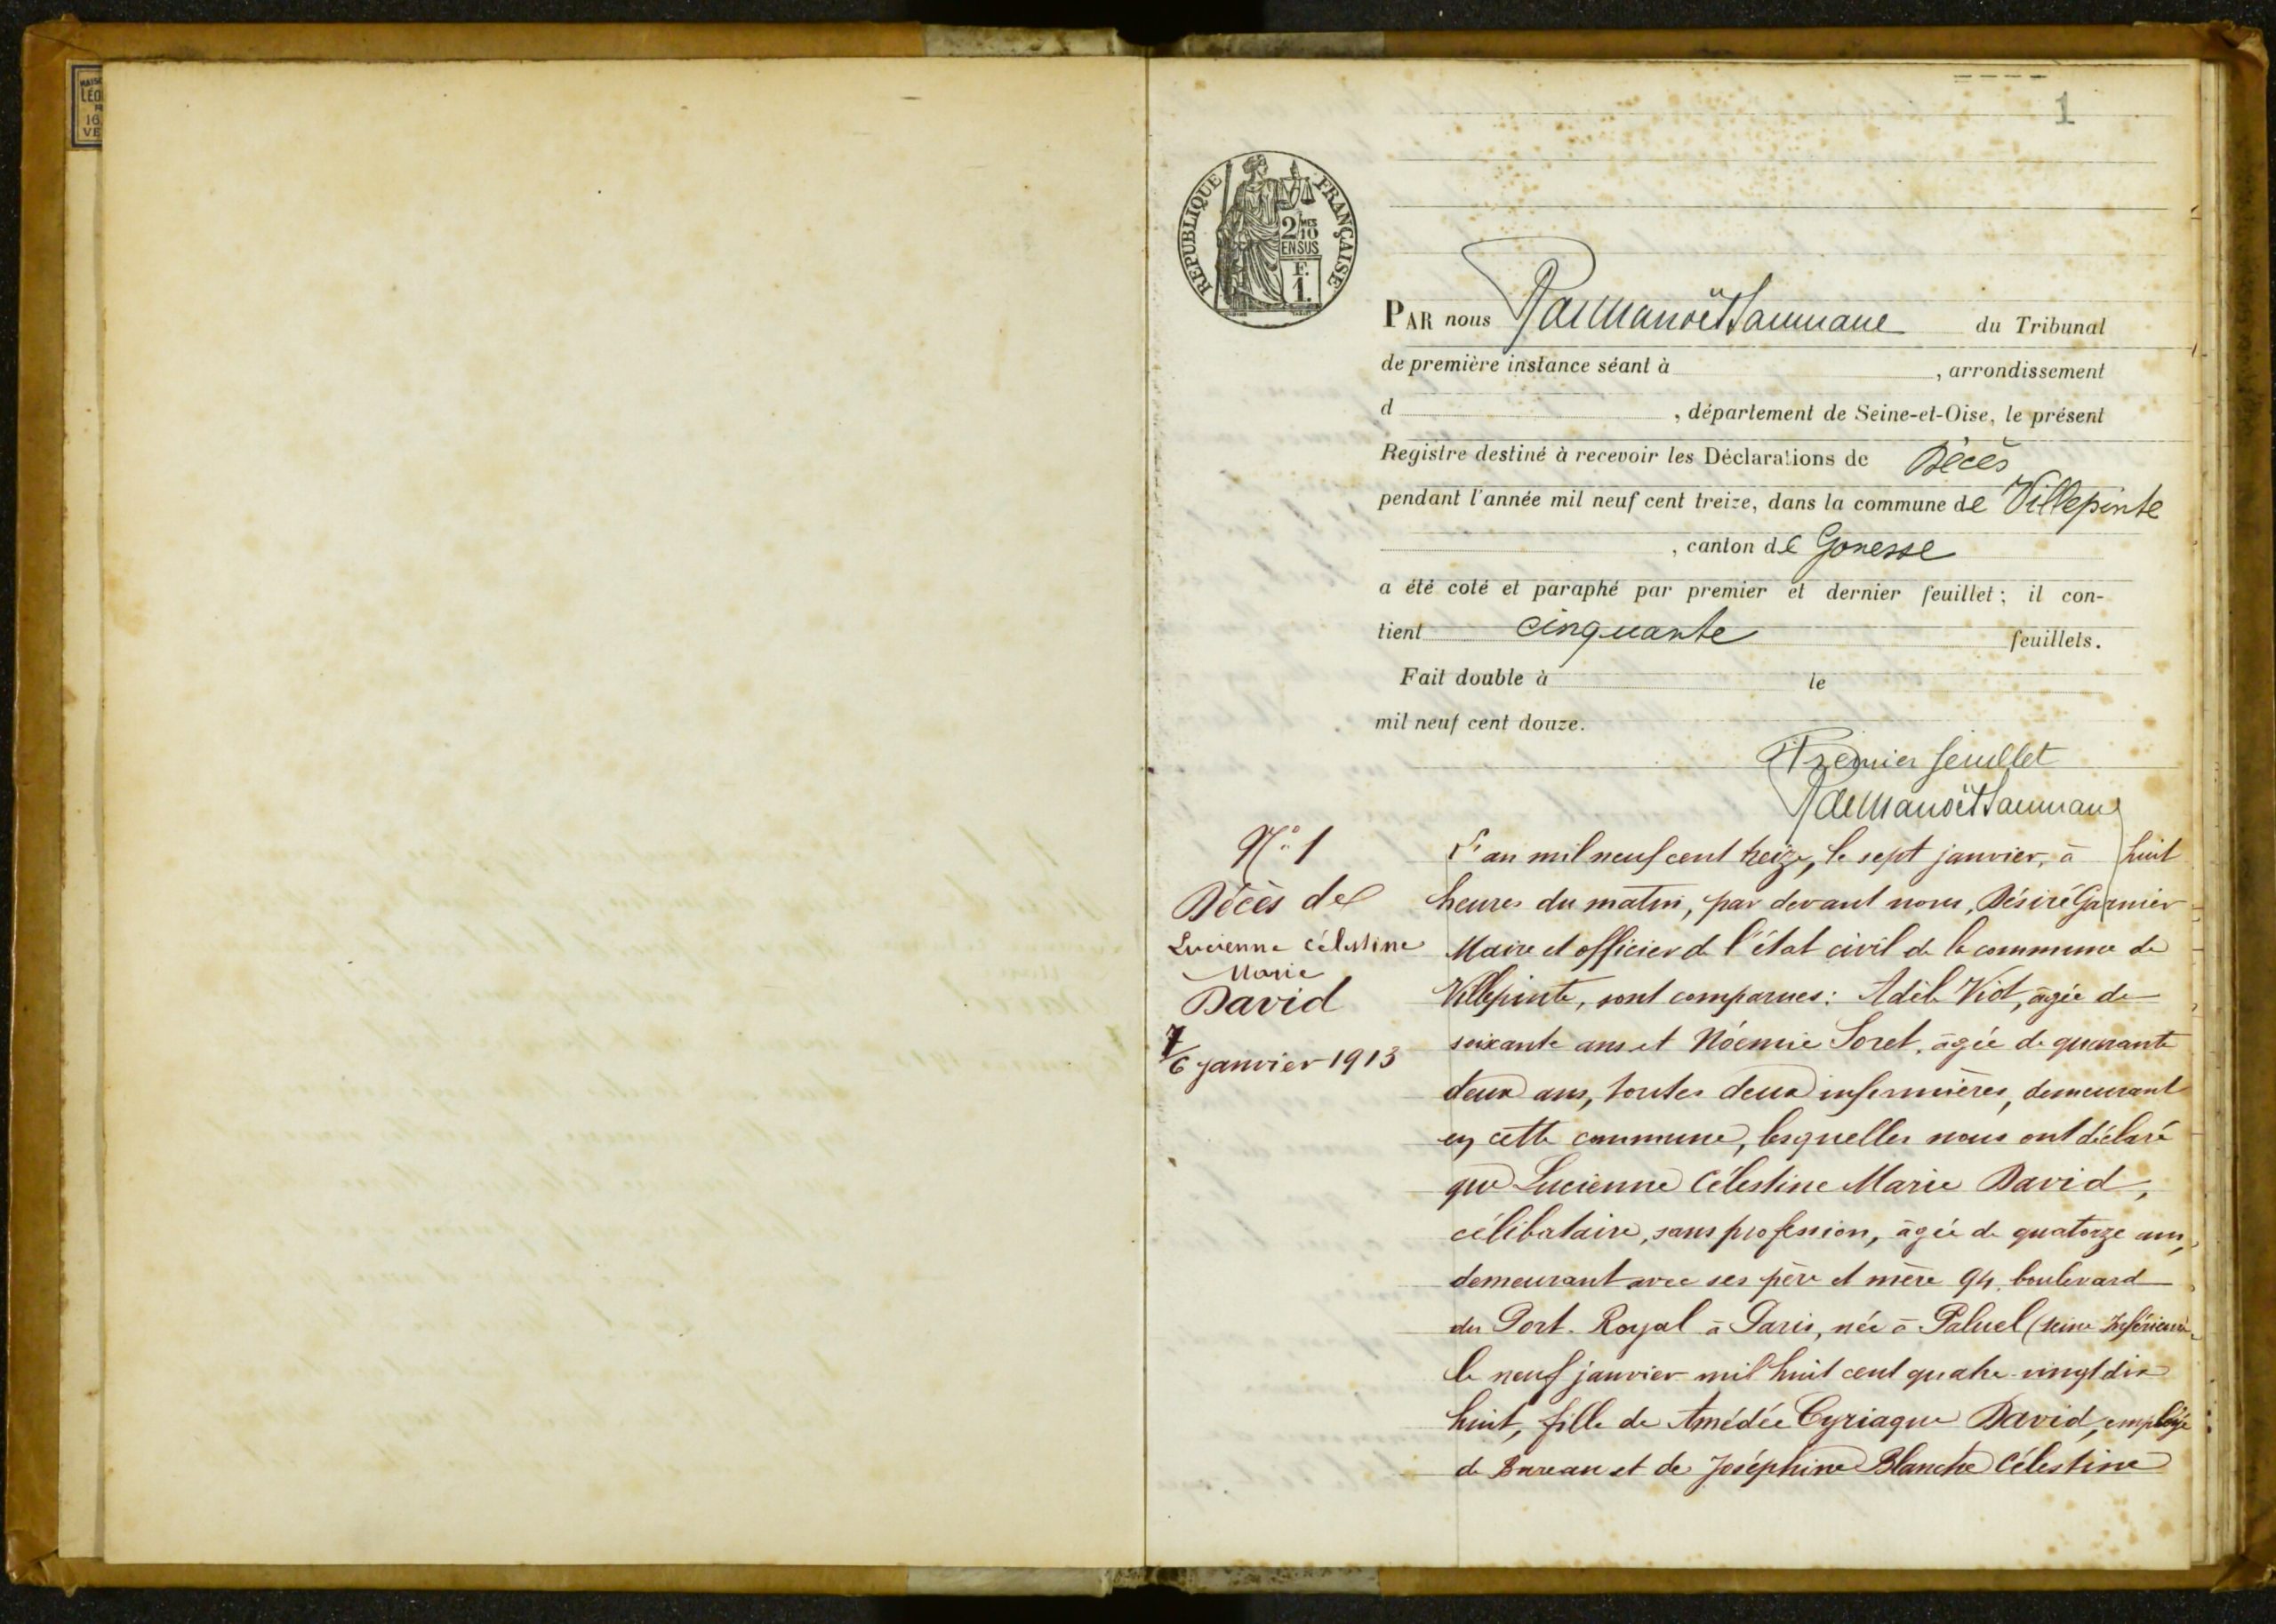 LÉO
16,
VE
1
RÉPUBLIQUE FRANÇAISE
2 MES
10
EN SUS
F.
1.
PAR nous du Tribunal
de première instance séant à , arrondissement
d , département de Seine-et-Oise, le présent
Registre destiné à recevoir les Déclarations de Décès
pendant l'année mil neuf cent treize, dans la commune de Villepinte
, canton de Gonesse
a été coté et paraphé par premier et dernier feuillet ; il con-
tient cinquante feuillets.
Fait double à le
mil neuf cent douze.
Premier feuillet
N° 1
Décès de
Lucienne Célestine
Marie
David
7/6 janvier 1913
L'an mil neuf cent treize, le sept janvier, à huit
heures du matin, par devant nous, Désiré Garnier
Maire et officier de l'état civil de la commune de
Villepinte, sont comparues : Adèle Viot, âgée de
soixante ans et Noémie Soret, âgée de quarante
deux ans, toutes deux infirmières, demeurant
en cette commune, lesquelles nous ont déclaré
que Lucienne Célestine Marie David,
célibataire, sans profession, âgée de quatorze ans,
demeurant avec ses père et mère 94 boulevard
du Port-Royal à Paris, née à Paluel (Seine Inférieure
le neuf janvier mil huit cent quatre-vingt dix
huit, fille de Amédée Cyriaque David, employé
de Bureau et de Joséphine Blanche Célestine